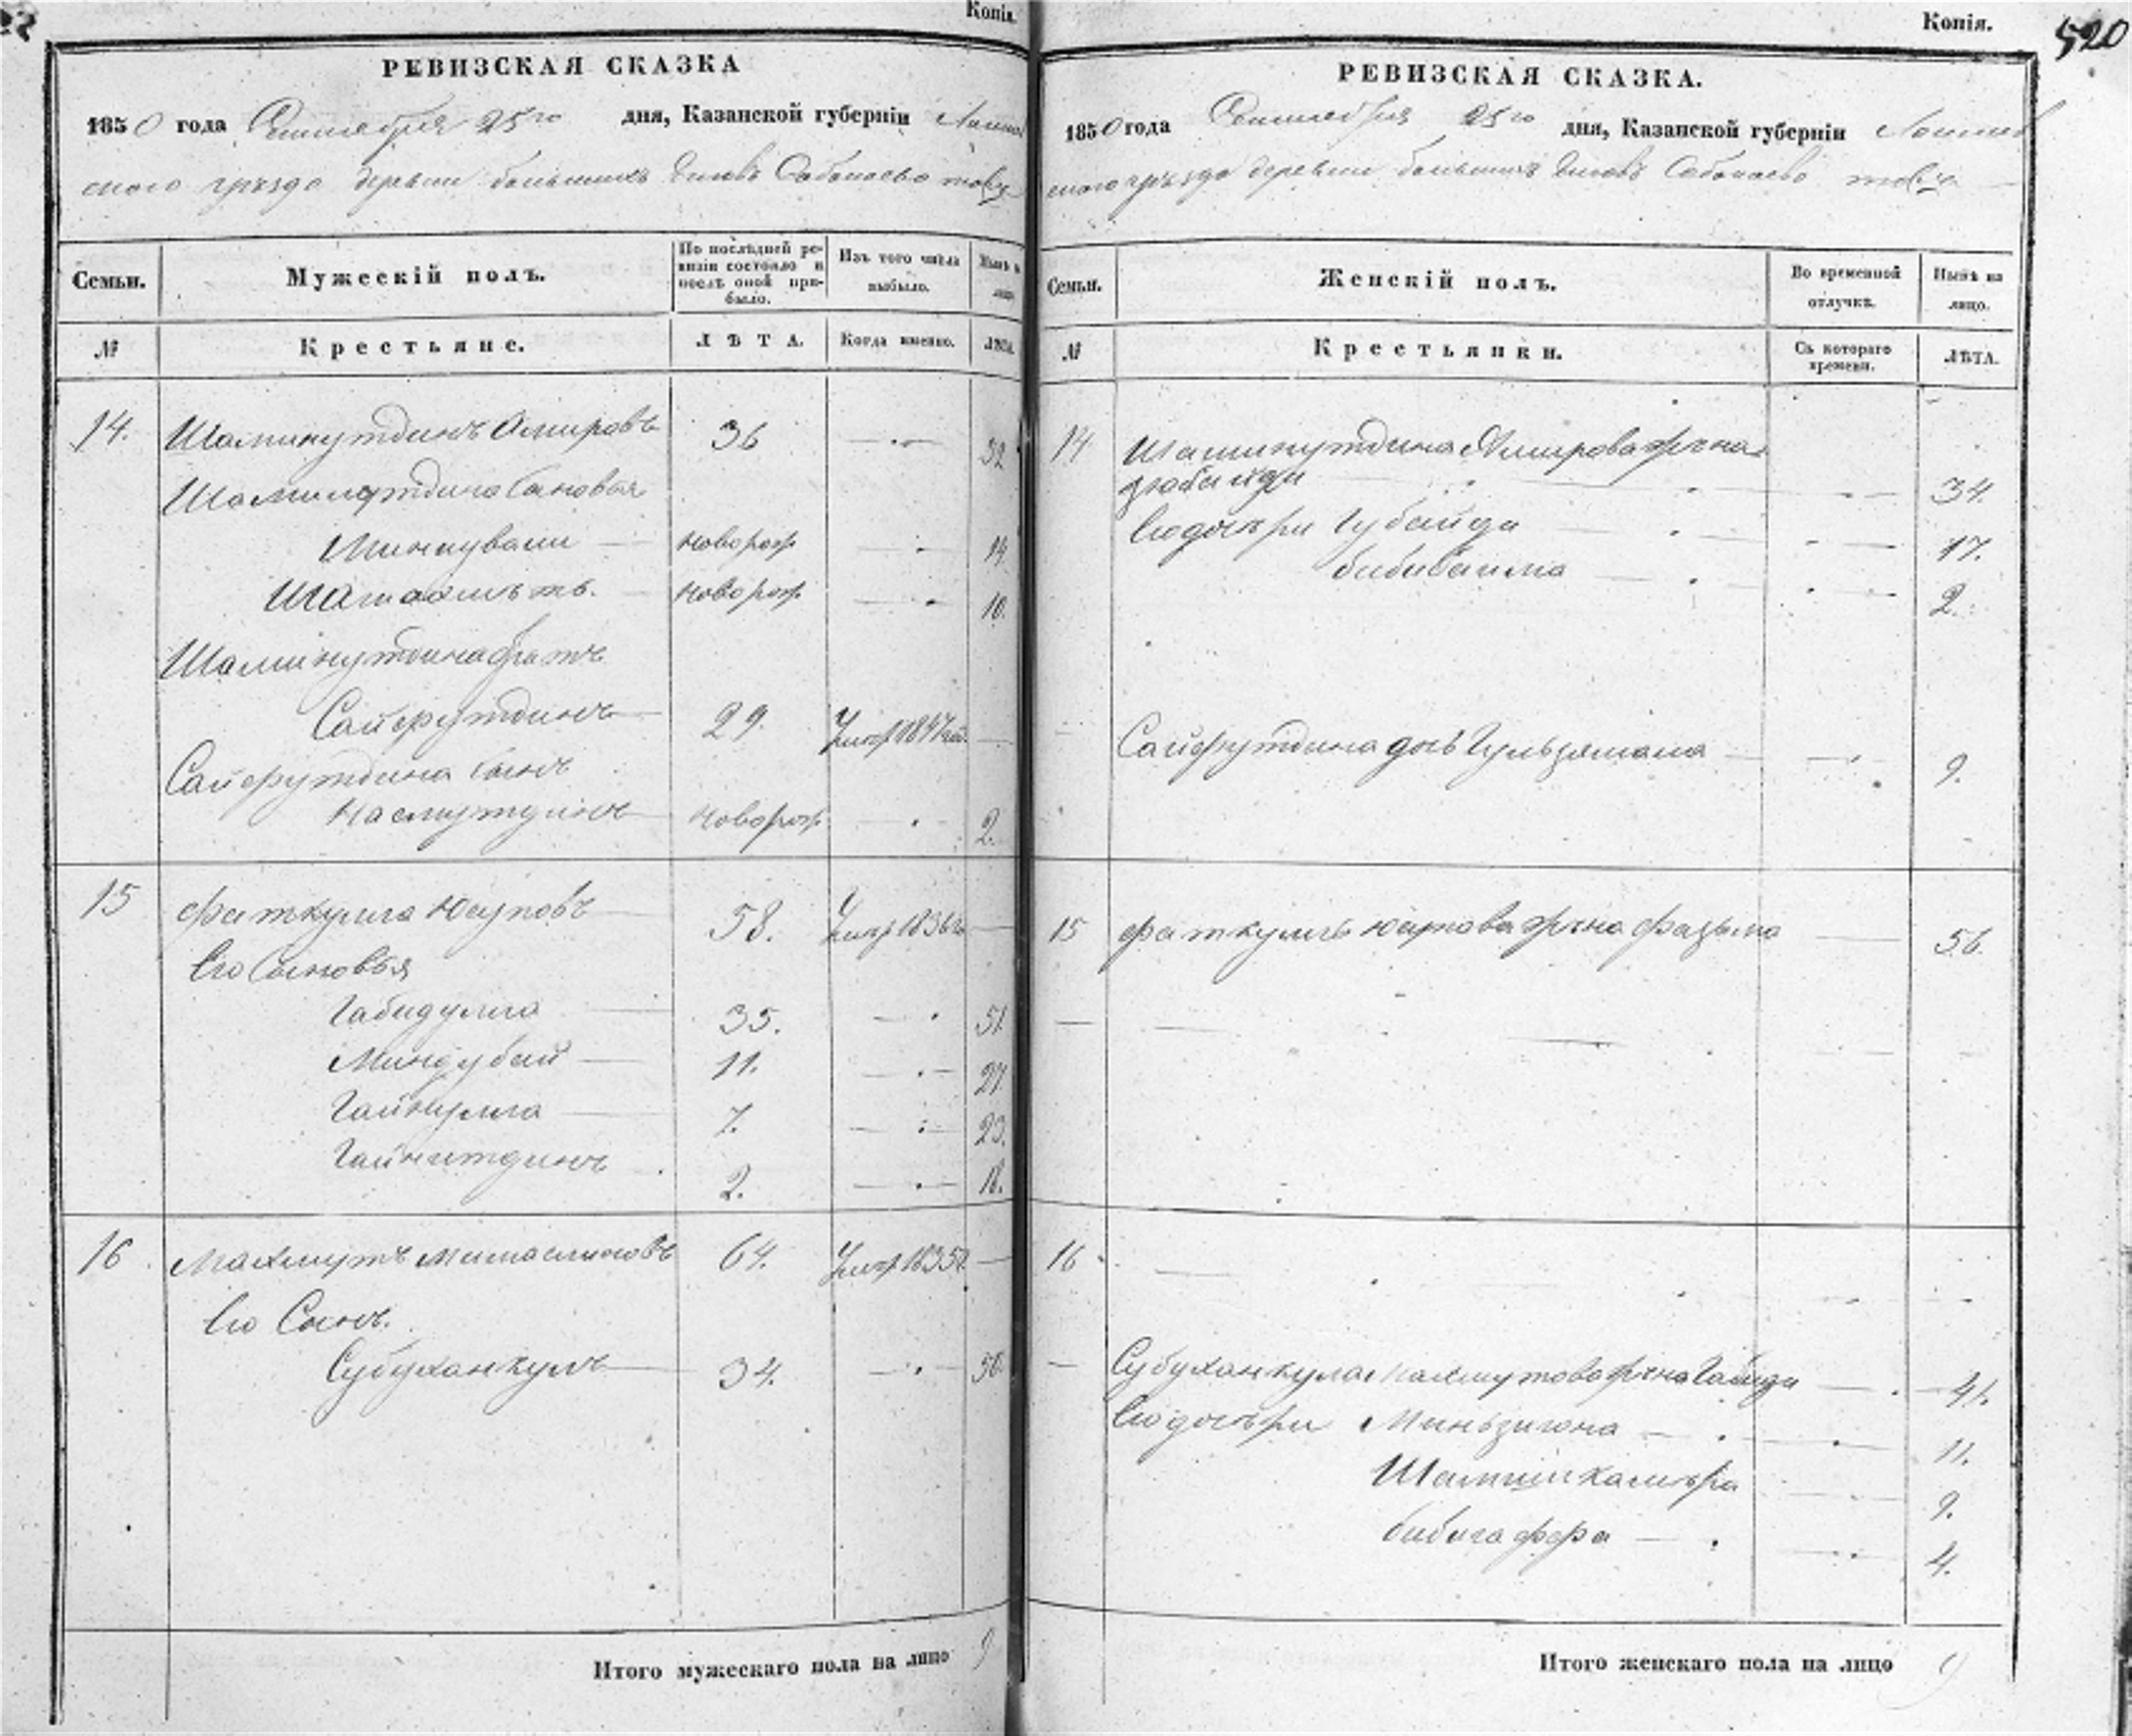 Копія.
РЕВИЗСКАЯ СКАЗКА
1850 года Сентября 25го дня, Казанской губерніи
скаго уѣзда деревни большихъ Сабанаево тожъ
Семьи.
Мужескій полъ.
По послѣдней ревизіи состояло и послѣ оной прибыло.
Изъ того числа выбыло.
Нынѣ на лицо
№
Крестьяне.
ЛѢТА.
Когда именно.
ЛѢТА.
14. Шаминутдинъ Амировъ 36 32
Шаминутдина Сыновья
Миннували новорож 14
Шагиахметъ. новорож 10.
Шаминутдина братъ
Сайфутдинъ 29. Умер 1847 год.
Сайфутдина сынъ
Насмутдинъ новорож 2.
15 Фаткулла Юсуповъ 58. Умер 1836
Его Сыновья
Габидулла 35. 51
Миндубай 11. 27
Гайнулла 7. 23.
Гайнитдинъ 2. 18.
16 Махмутъ 64. Умер 1835
Его Сынъ.
Субуханкулъ 34. 50
Итого мужескаго пола на лицо 9
Копія. 520
РЕВИЗСКАЯ СКАЗКА.
1850 года Сентября 25го дня, Казанской губерніи
скаго уѣзда деревни большихъ Сабанаево тожъ
Семьи.
Женскій полъ.
Во временной отлучкѣ.
Нынѣ на лицо.
№
Крестьянки.
Съ котораго времени.
ЛѢТА.
14 Шаминутдина Амирова жена
Зюбайда 34.
Его дочери Губайда 17.
бибибаима 2.
Сайфутдина дочь Гульзямала 9.
15 Фаткуллы Юсупова жена Фазыма 56.
16
Субуханкула Махмутова жена Габида 41.
Его дочери Миньзигона 11.
Шамшикамыря 9.
бибигаффа 4.
Итого женскаго пола на лицо 9